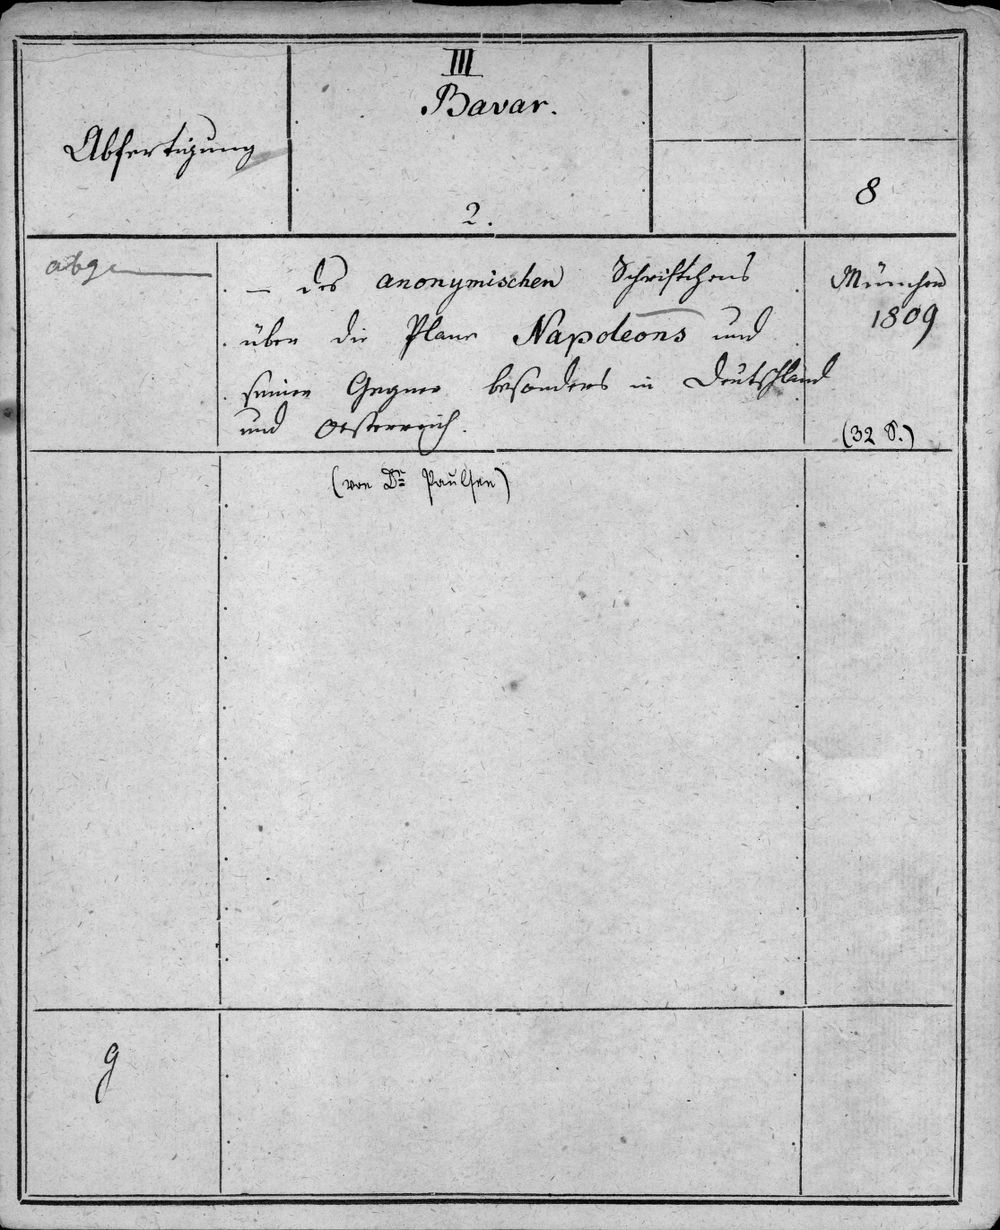 III
Bavar.
Abfertigung
8
2.
— des anonymischen Schriftchens
über die Plane Napoleons und
seiner Gegner besonders in Deutschland
und Oesterreich.
München
1809
(32 S.)
(von Dr Paulsen)
g